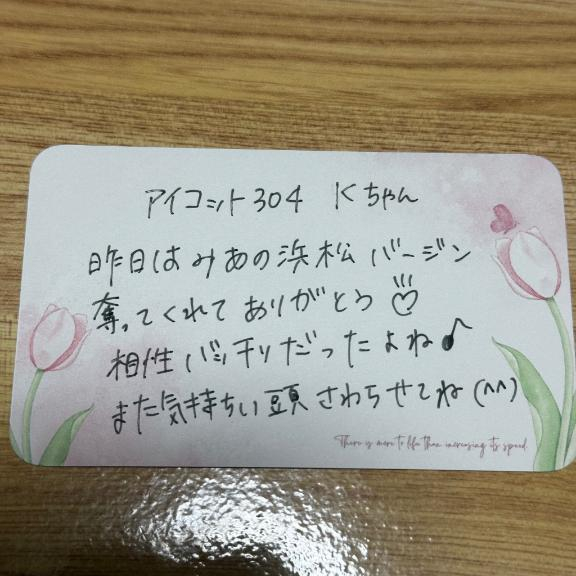 アイコット304 Kちゃん
昨日はみあの浜松バージン
奪ってくれてありがとう♡
相性バッチリだったよね♪
また気持ちい頭さわらせてね(^^)
There is more to life than increasing its speed.